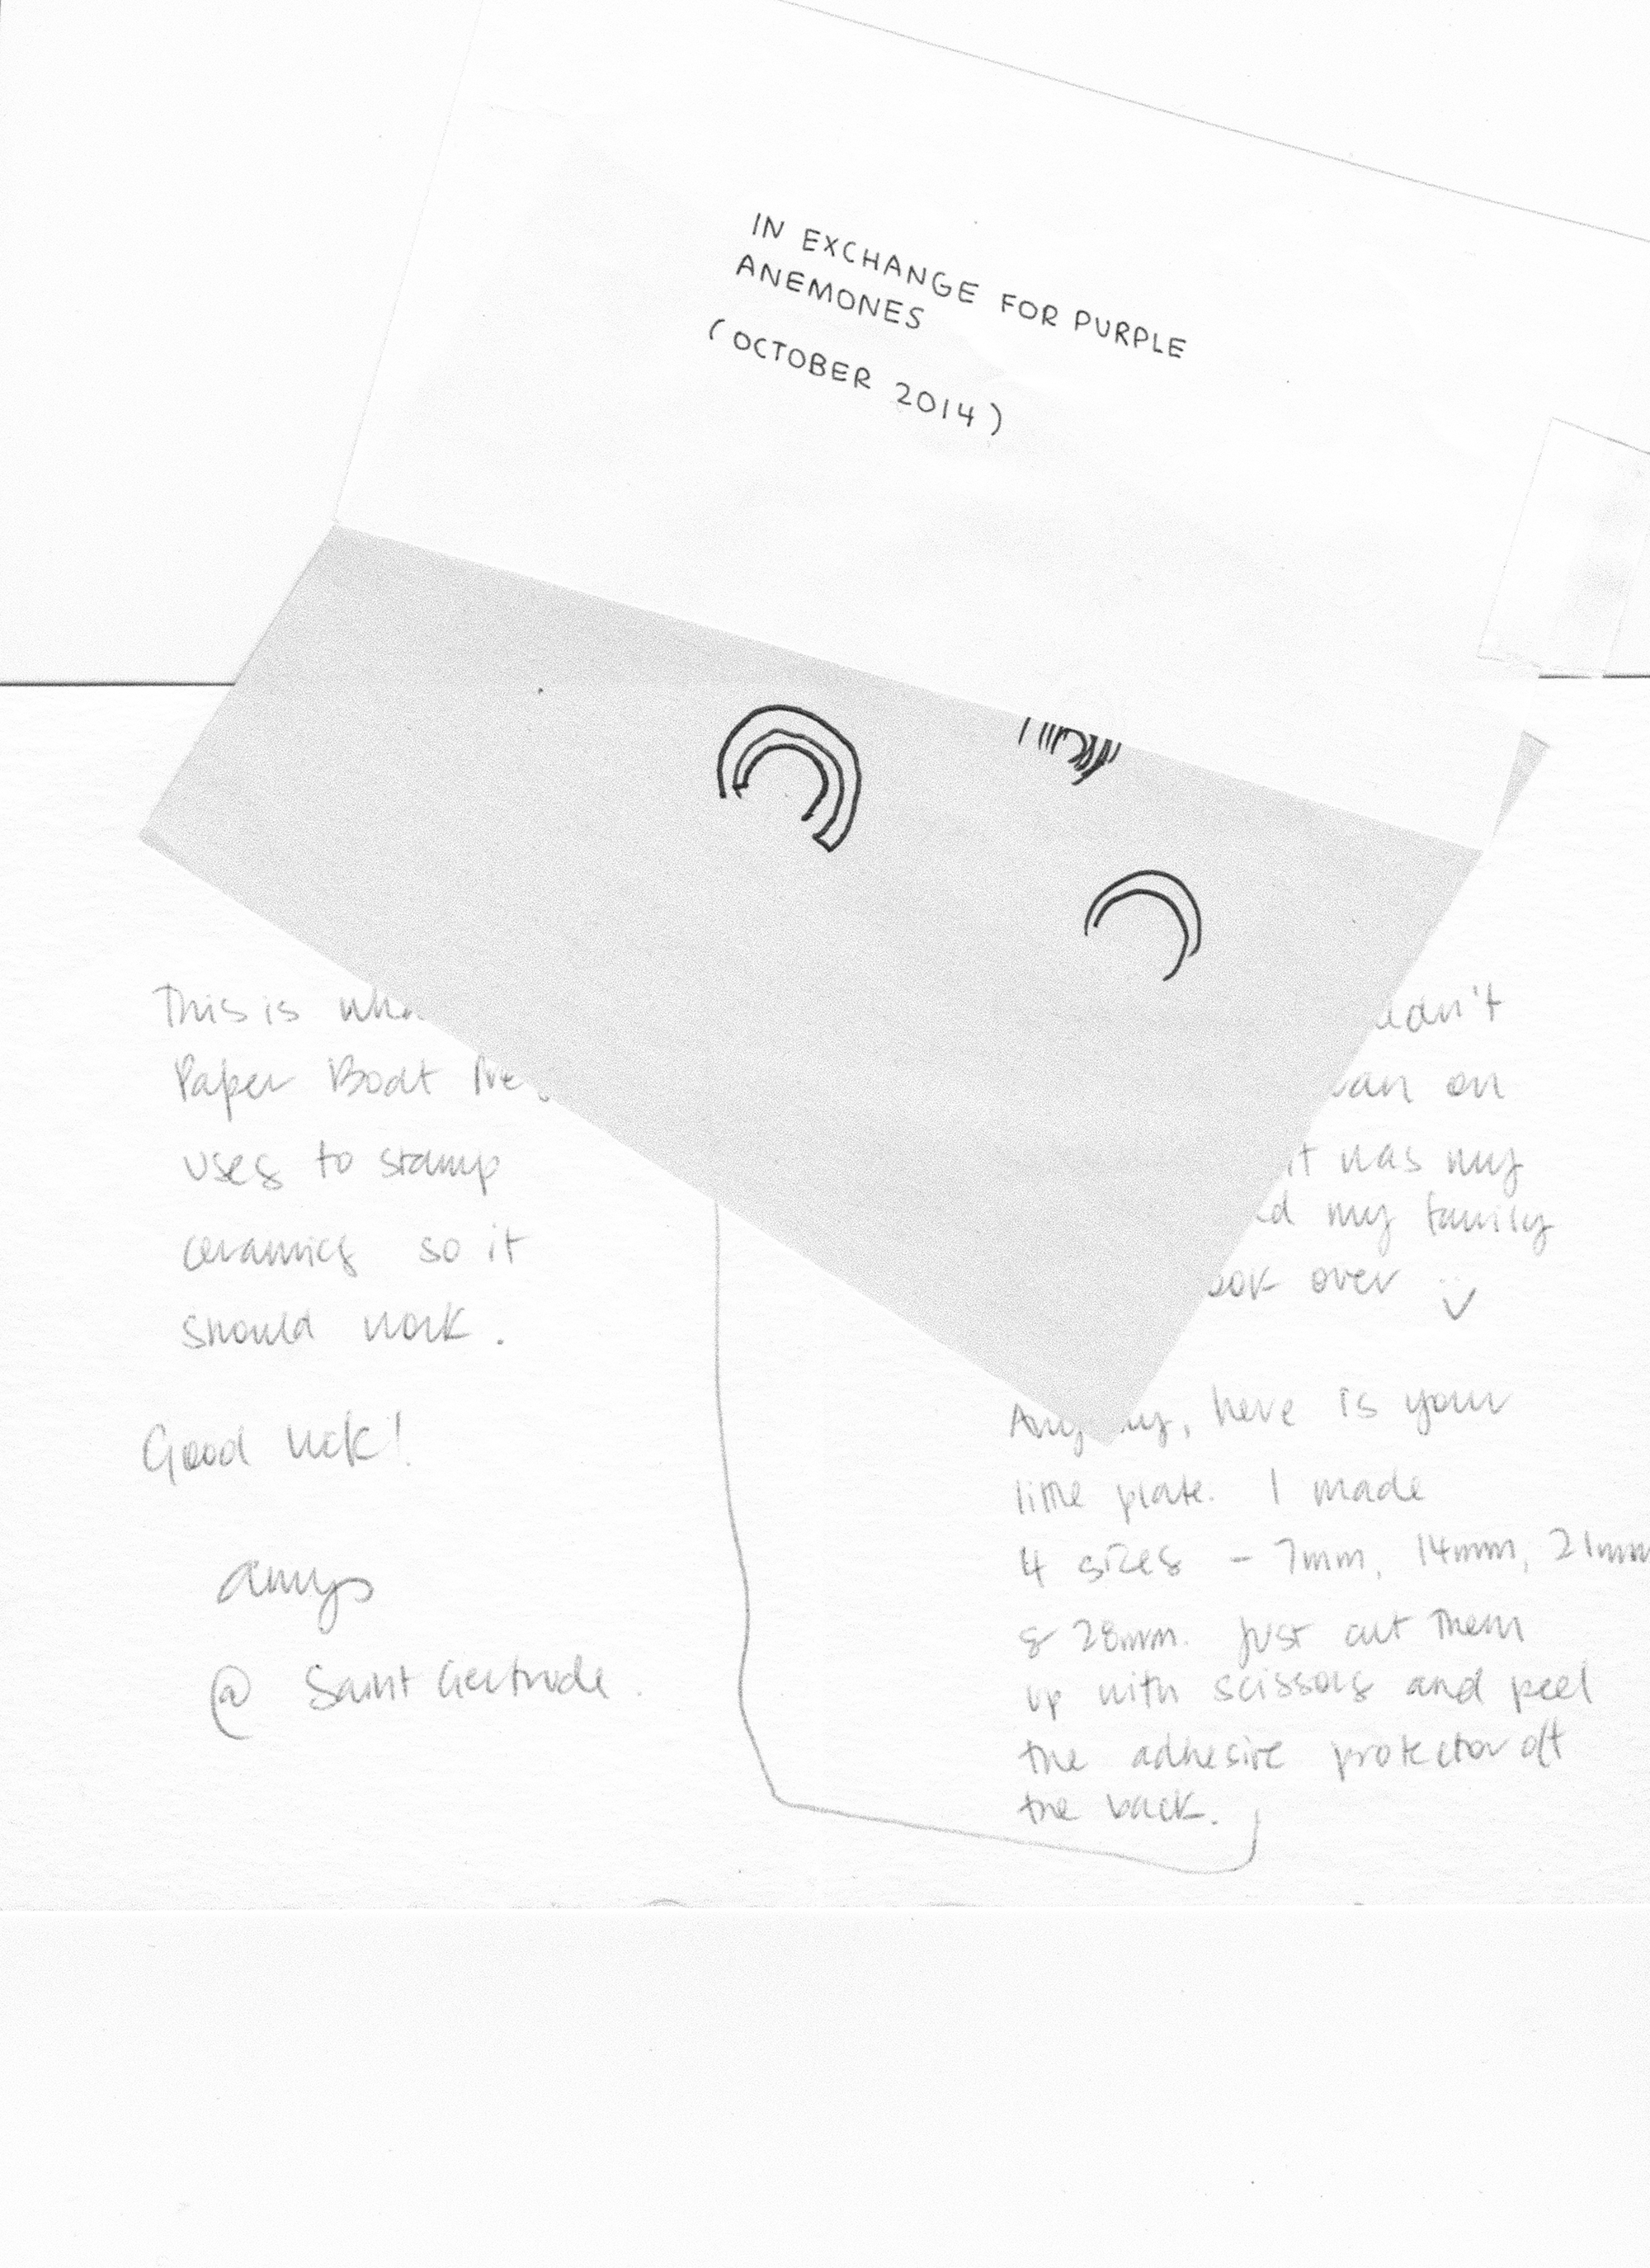 IN EXCHANGE FOR PURPLE
ANEMONES
(OCTOBER 2014)
This is
Paper Boat
uses to stamp
ceramics so it
should work.
Good luck!
amy
@ Saint Gertrude.
on
it was my
my family
over
here is your
little plate. I made
4 sizes - 7mm, 14mm, 21mm
& 28mm. Just cut them
up with scissors and peel
the adhesive protector off
the back.